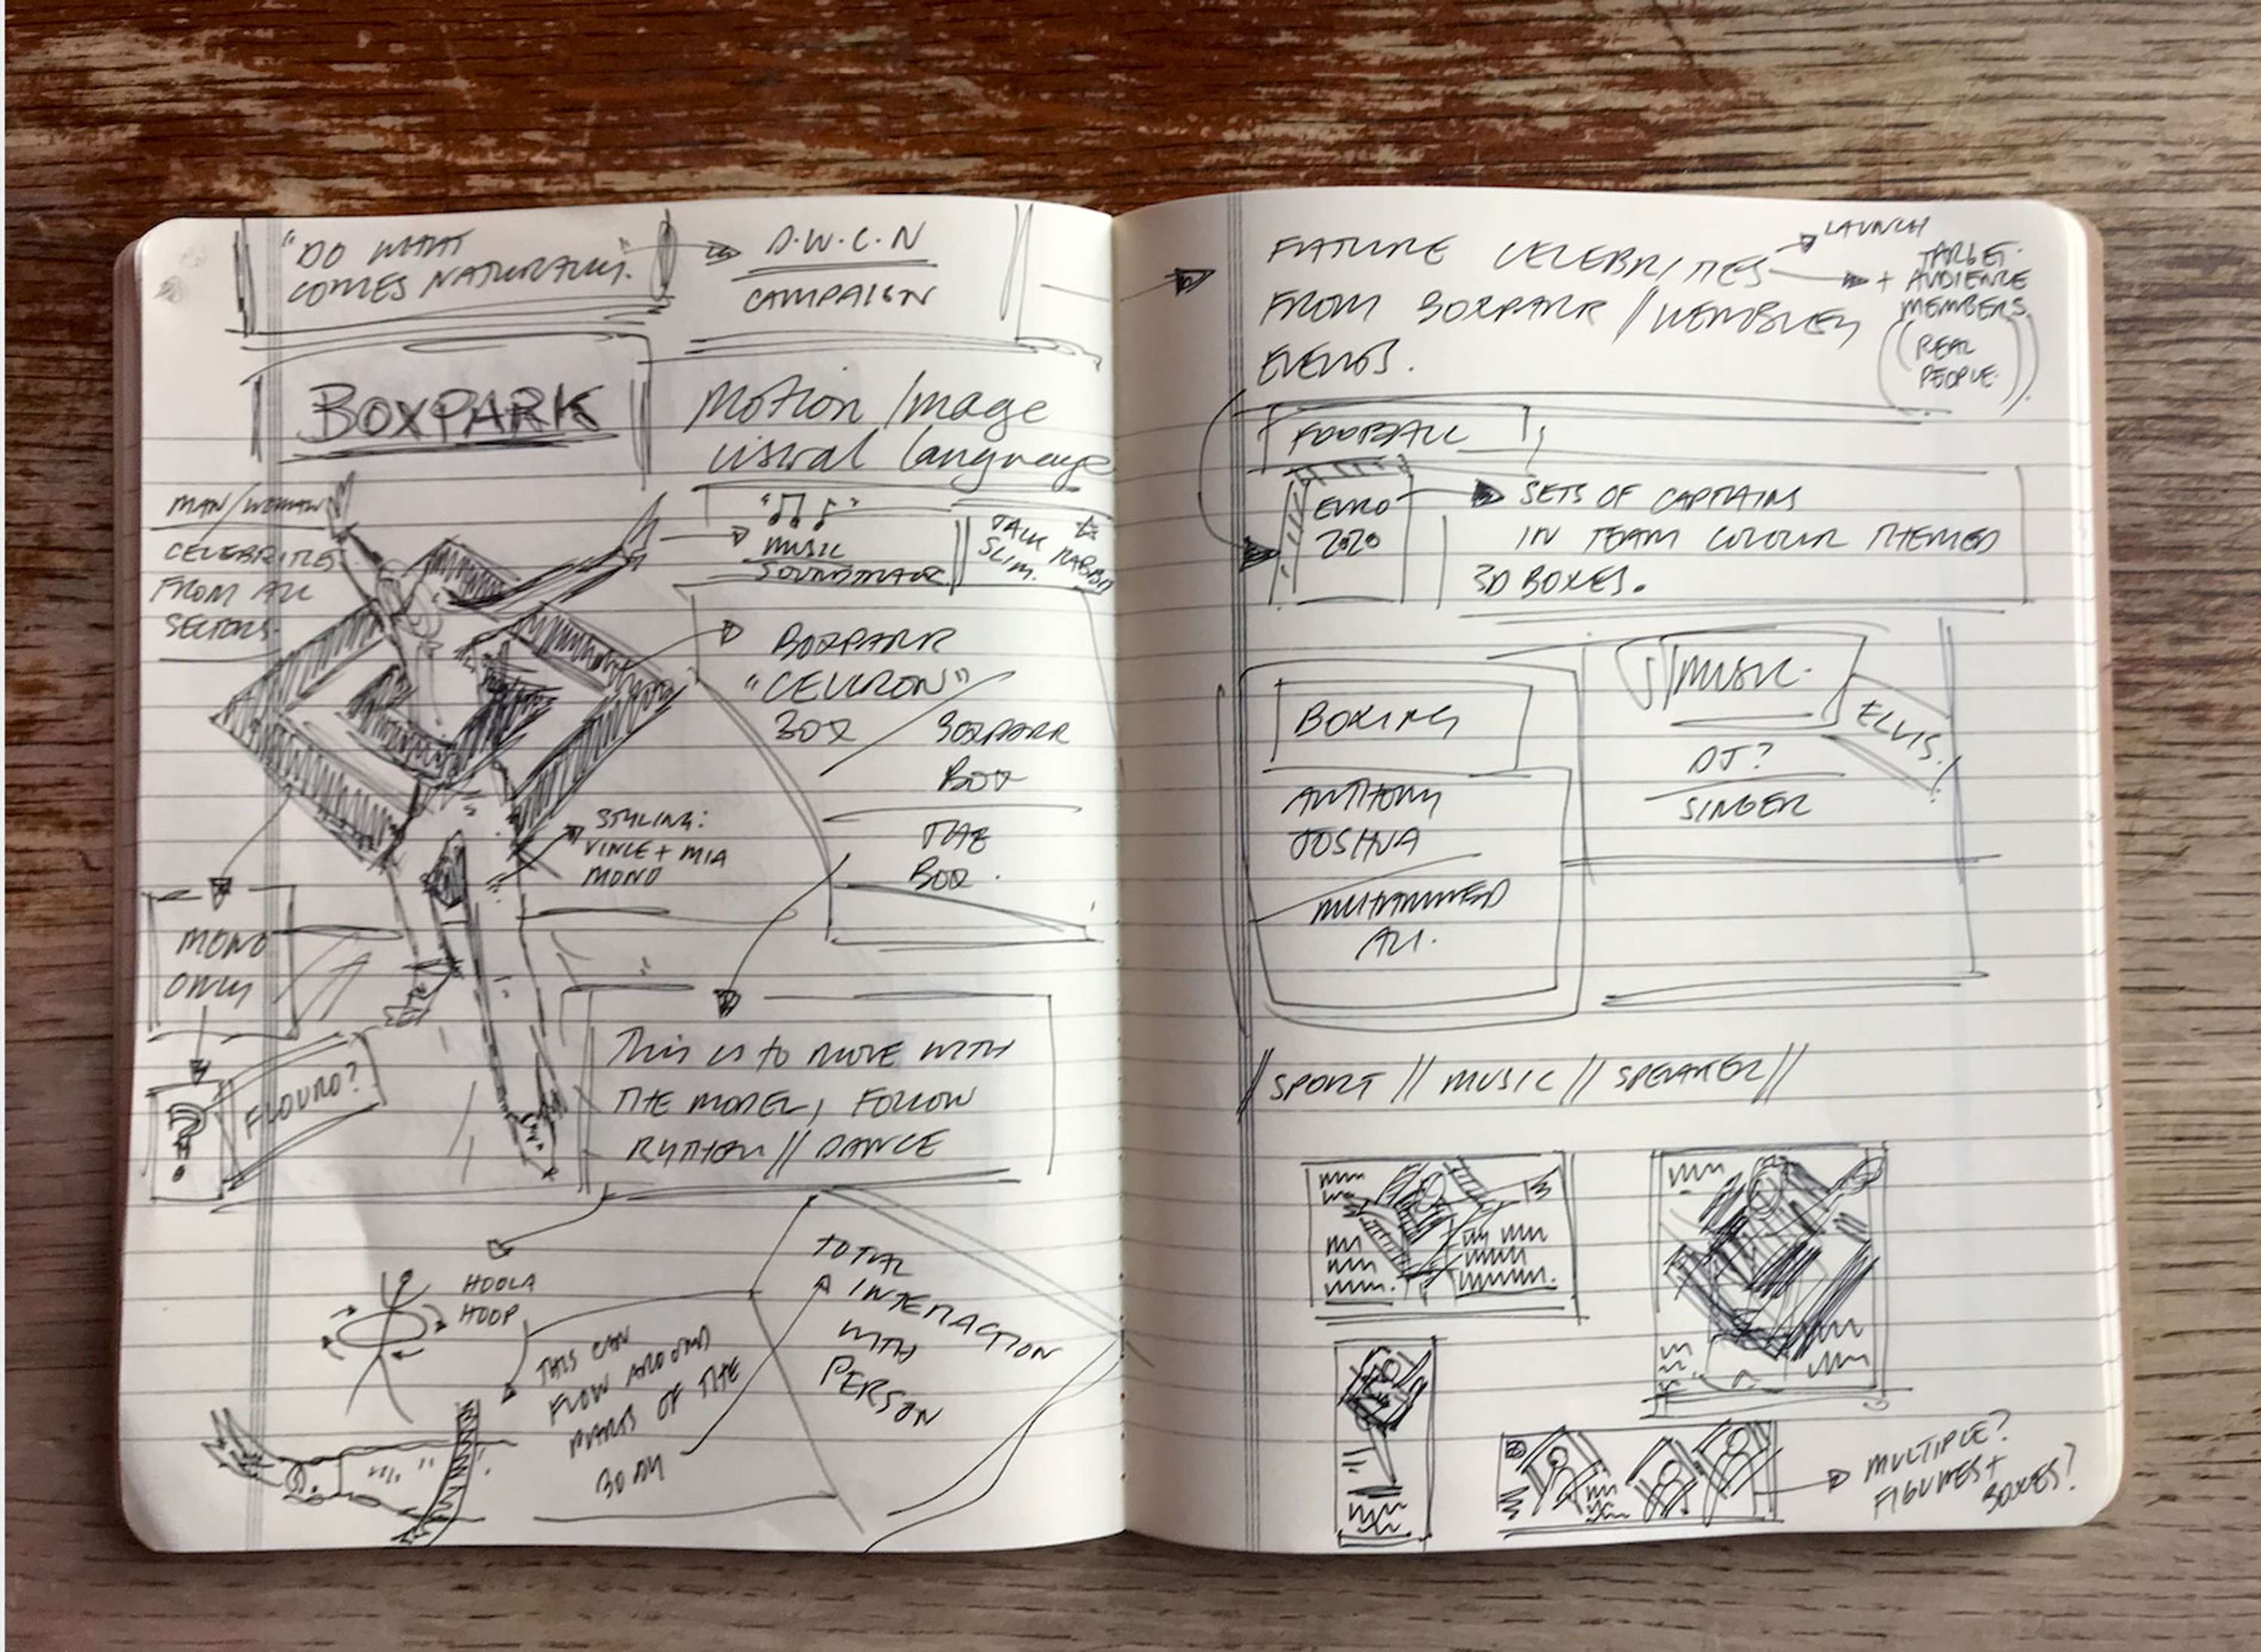 "DO WHAT
COMES NATURALLY.
D.W.C.N
CAMPAIGN
BOXPARK
Motion/Image
visual language
MAN/WOMAN
CELEBRITIES
FROM ALL
SECTORS.
MUSIC
SOUNDTRACK
TALK
SLIM.
RABBIT
BOXPARK
BOX
BOXPARK
BOX
THE
BOX.
STYLING:
VINCE + MIA
MONO
MONO
ONLY
?
FLOURO?
This is to move with
THE MODEL, FOLLOW
RYTHem // DANCE
HOOLA
HOOP
THIS CAN
FLOW AROUND
PARTS OF THE
BODY
TOTAL
INTERACTION
WITH
PERSON
FUTURE CELEBRITIES
FROM BOXPARK // WEMBLEY
EVENTS.
LAUNCH
+ TARGET
AUDIENCE
MEMBERS.
(REAL
PEOPLE.)
FOOTBALL
EURO
2020
SETS OF CAPTAINS
IN TEAM COLOUR THEMED
3D BOXES.
BOXING
ANTHONY
JOSHUA
MUHAMMED
ALI.
MUSIC.
DJ?
SINGER
ELVIS!
// SPORT // MUSIC // SPEAKER //
MULTIPLE?
FIGURES +
BOXES?